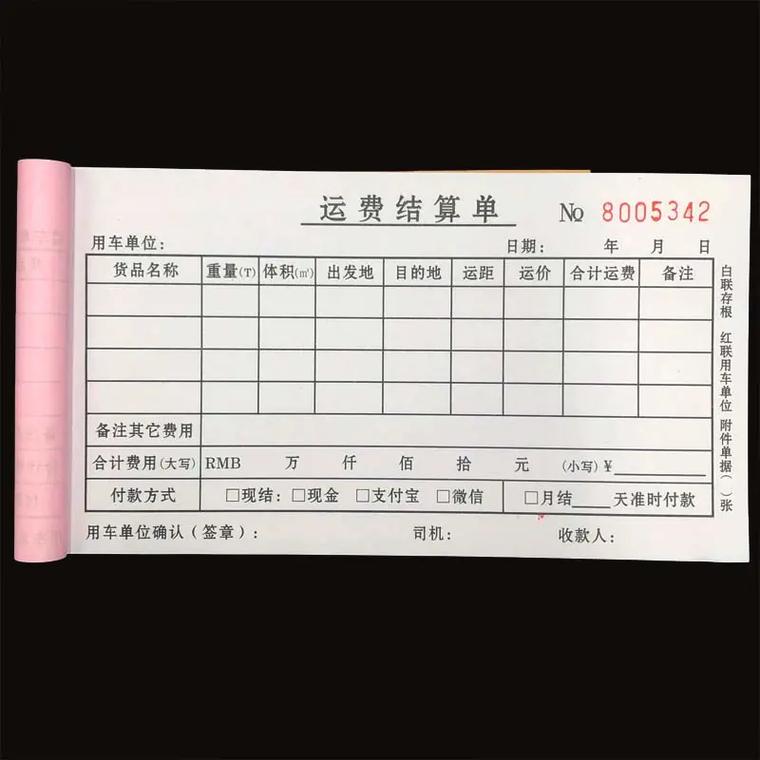 运费结算单 No 8005342
用车单位： 日期： 年 月 日
货品名称 重量(T) 体积(㎥) 出发地 目的地 运距 运价 合计运费 备注
备注其它费用
合计费用(大写) RMB 万 仟 佰 拾 元 (小写)￥
付款方式 □现结：□现金 □支付宝 □微信 □月结____天准时付款
用车单位确认（签章）： 司机： 收款人：
白联存根 红联用车单位 附件单据（ ）张